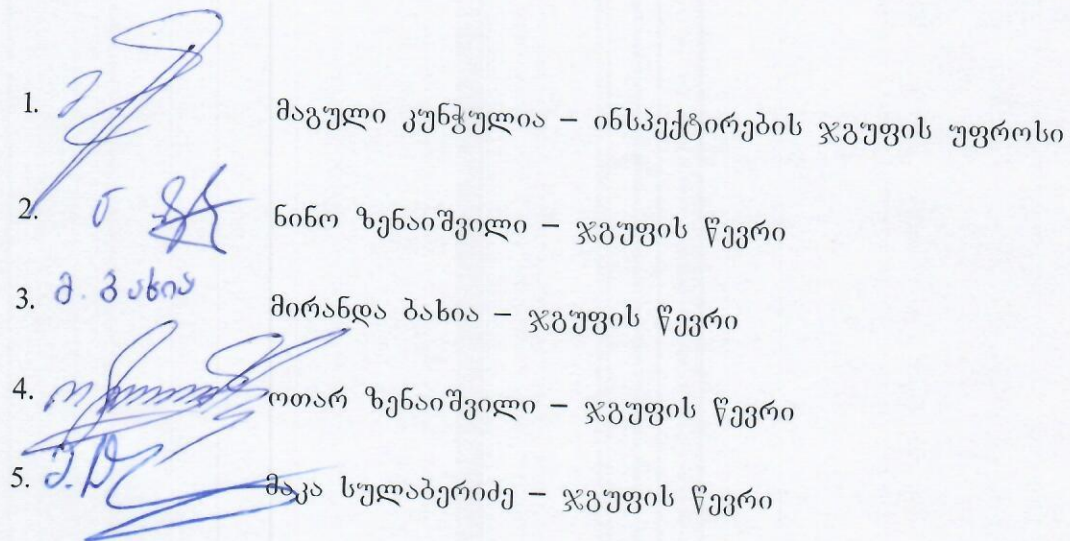 1. მაგული კუნჭულია – ინსპექტირების ჯგუფის უფროსი
2. ნინო ზენაიშვილი – ჯგუფის წევრი
3. მ. ბახია მირანდა ბახია – ჯგუფის წევრი
4. ოთარ ზენაიშვილი – ჯგუფის წევრი
5. მაკა სულაბერიძე – ჯგუფის წევრი